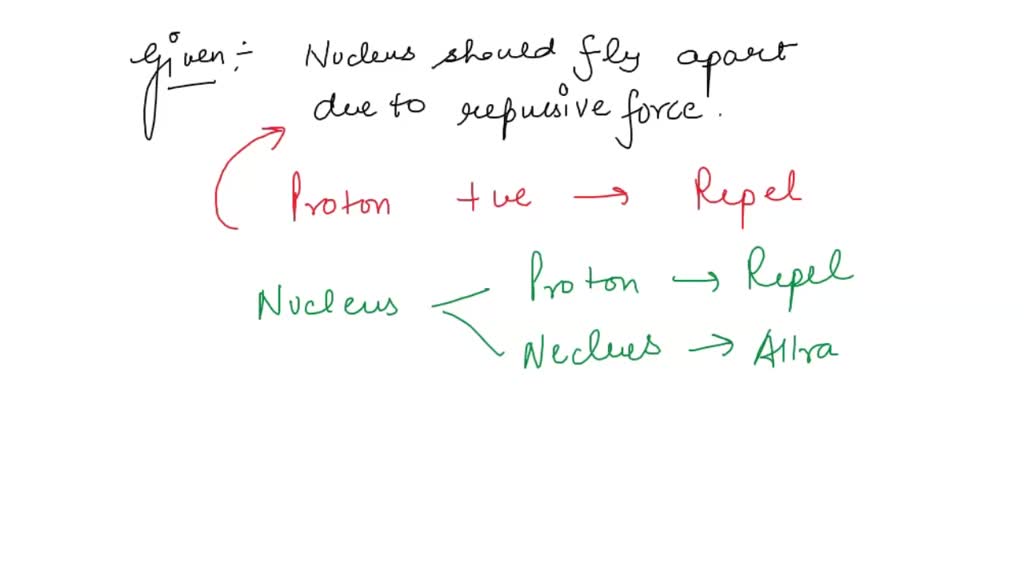 Given :- Nucleus should fly apart
due to repulsive force.
Proton +ve → Repel
Proton → Repel
Nucleus
Neclues → Attra